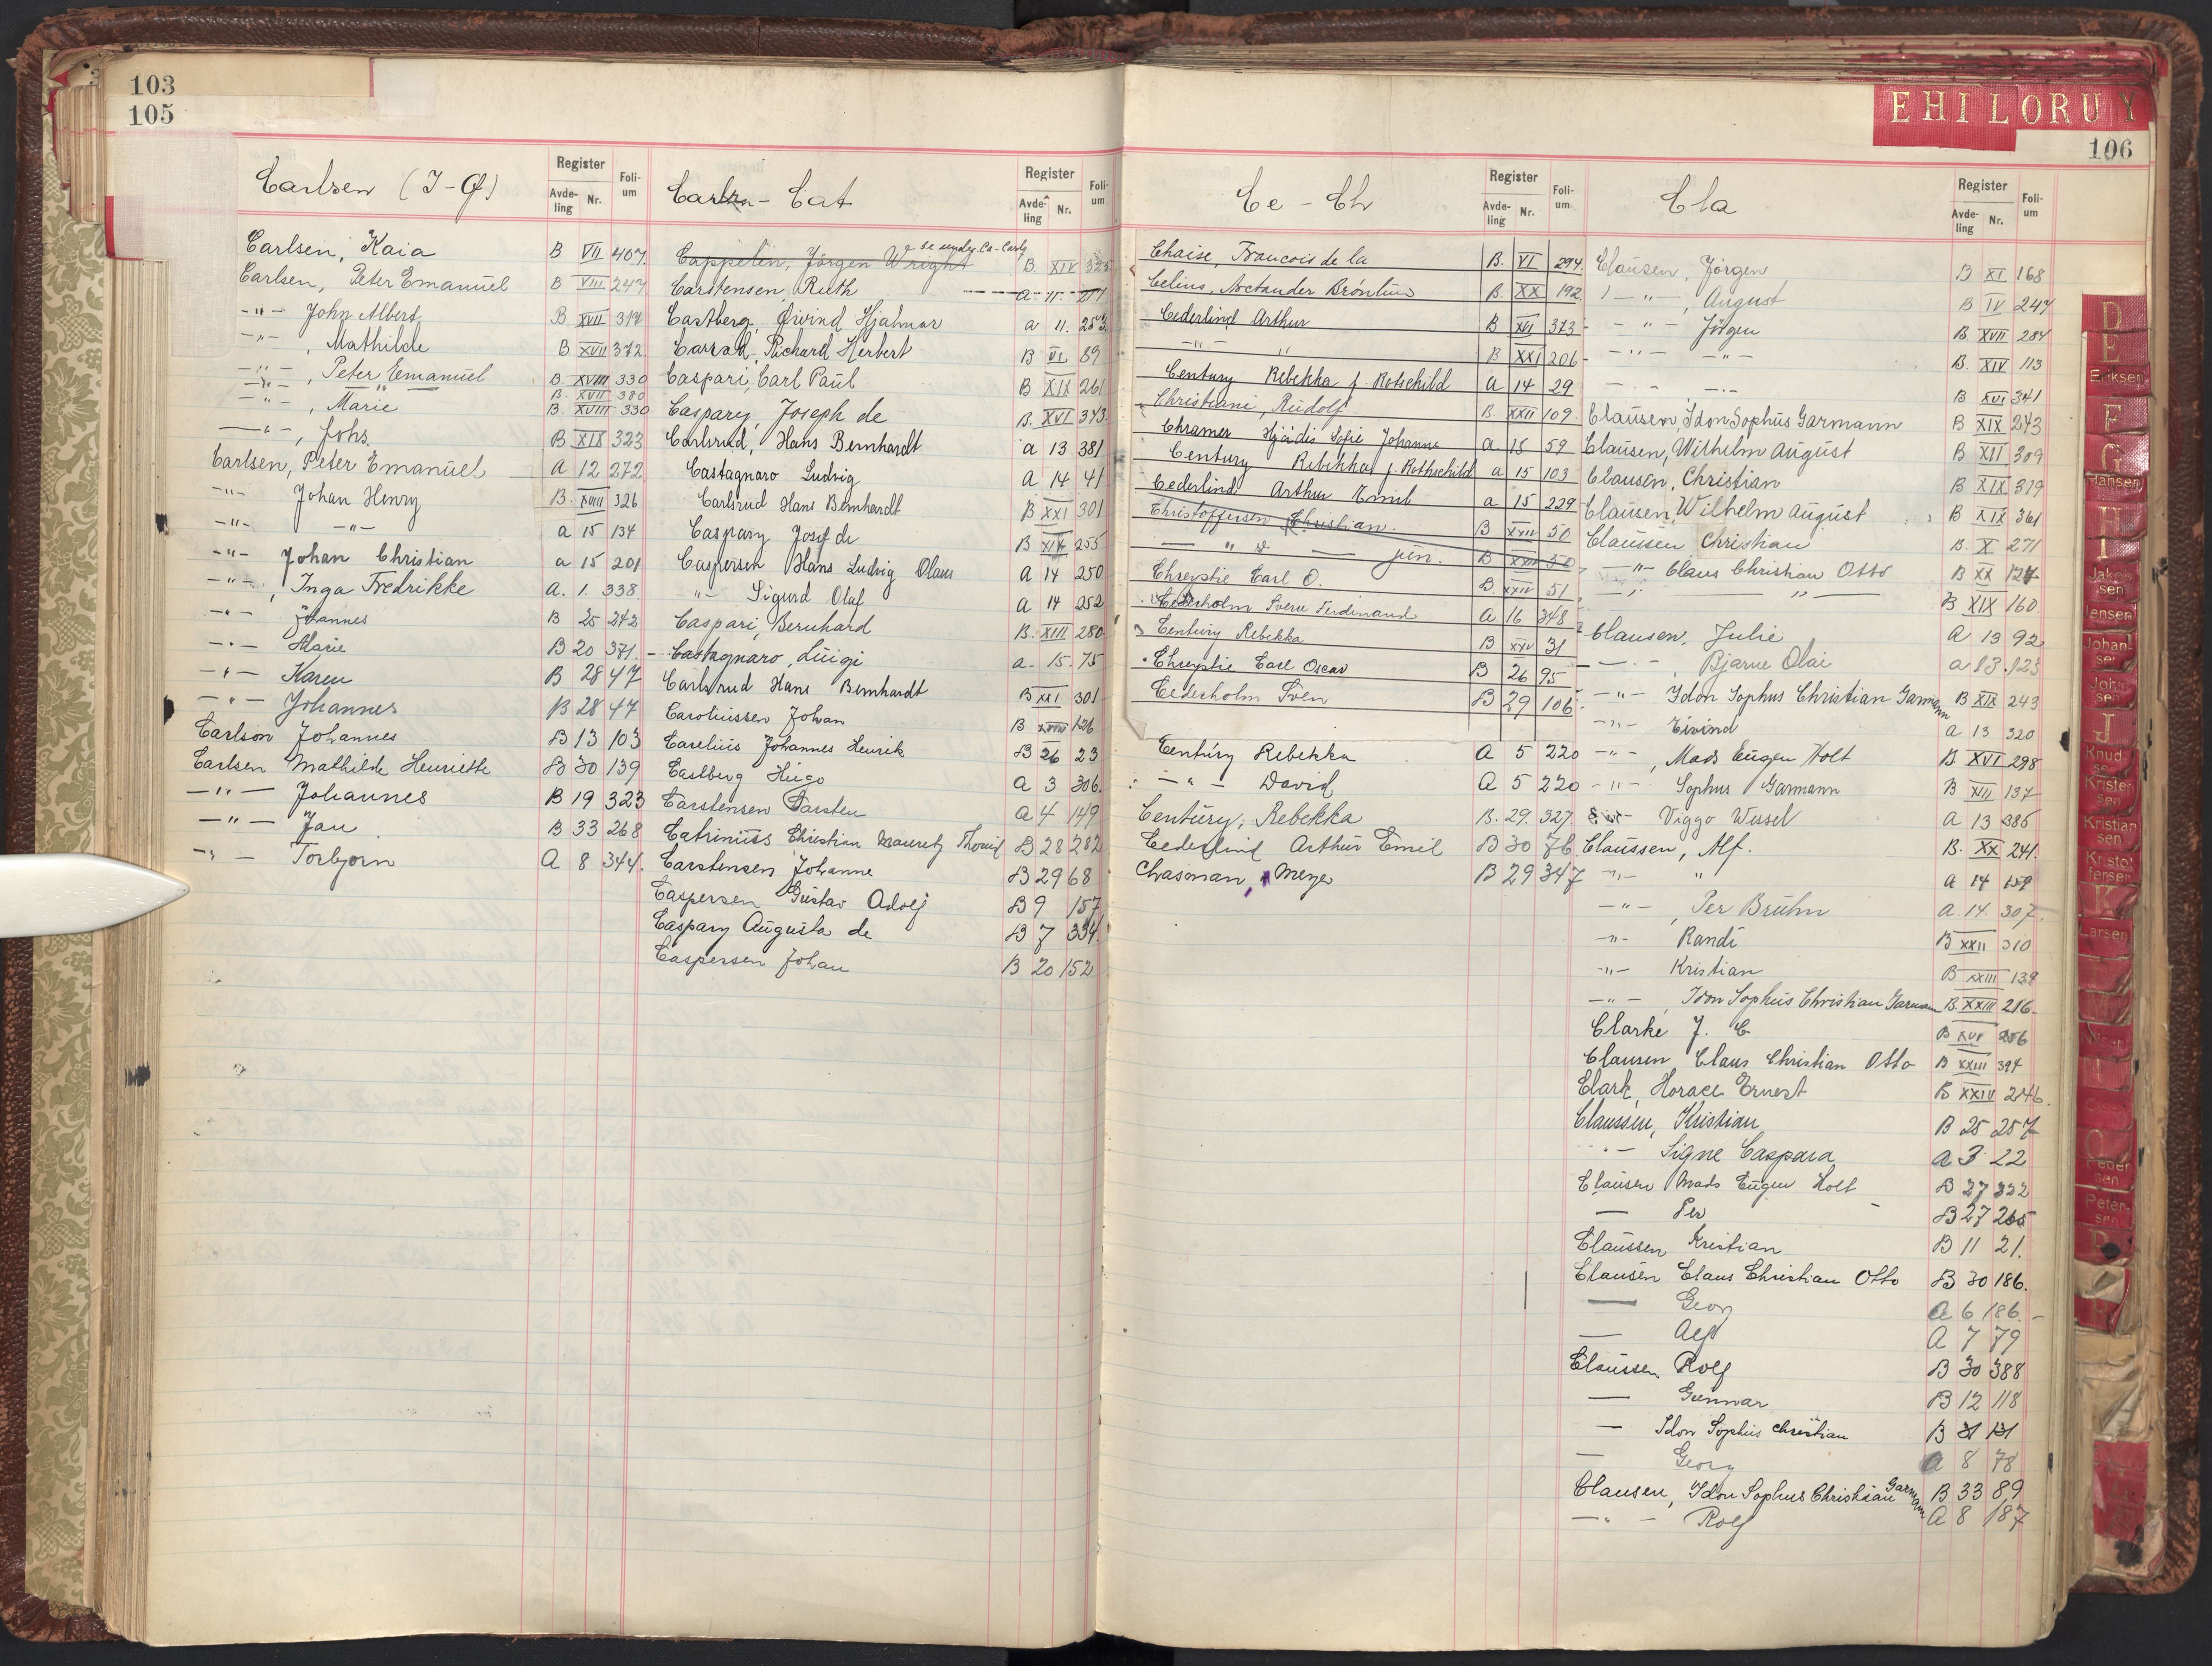 103
105
Carlsen (J-Q)
Register
Avde-ling Nr.
Foli-um
Carlsen, Kaia B VII 407
Carlsen, Peter Emanuel B VIII 247
-"- John Albert B XVII 317
-"- , Mathilde B XVII 372
-"- , Peter Emanuel B XVIII 330
-"- B. XVII 380
-"- , Marie B. XVIII 330
-"- , Johs. B XIX 323
Carlsen, Peter Emanuel A 12 272
-"- Johan Henry B. XVIII 326
-"- -"- a 15 134
-"- Johan Christian a 15 201
-"- , Inga Fredrikke A. 1. 338
-"- Johannes B 25 242
-"- Marie B 20 371
-"- Karen B 28 47
-"- Johannes B 28 47
Carlson Johannes B 13 103
Carlsen Mathilde Henriette B 30 139
-"- Johannes B 19 323
-"- Jan B 33 268
-"- Torbjørn A 8 344.
Carlsn - Cat
Register
Avde-ling Nr.
Foli-um
se under Ca-Carls
Cappelen, Jörgen Wright B. XIV 325
Carstensen Ruth a. 11.
Castberg, Øivind Hjalmar a 11. 253
Richard Herbert B VI 89
Caspari, Carl Paul B XIX 261
Caspary, Joseph de B. XVI 343
Carlsrud, Hans Bernhardt a 13 381
Castagnaro Ludvig A 14 41
Carlsrud Hans Bernhardt B XXI 301
Caspary Josef de B XIX 255
Caspersen Hans Ludvig Olaus A 14 250
-"- Sigurd Olaf A 14 252
Caspari, Bernhard B. XIII 280
Castagnaro, Luigi a. 15. 75
Carlsrud Hans Bernhardt B XXI 301
Caroliussen Johan B XXVIII 126
Carelius Johannes Henrik B 26 23
Caslberg Hugo A 3 306.
Carstensen Carsten A 4 149
Catrinus Christian Mauretz B 28 282
Carstensen Johanne B 29 68
Caspersen Gustav Adolf B 9 157
Caspary Augusta de B 7 334.
Caspersen Johan B 20 152
EHILORUY
106
Ce - Ch
Register
Avde-ling Nr.
Foli-um
Chaise, Francois de la B. VI 294.
Celius, Nectander Bröntius B. XX 192
Cederlind Arthur B XVI 373
-"- " B XXI 206
Century Rebekka f. Rotschild A 14 29
Christiani, Rudolf B. XXII 109
Chramer Hjördis Sofie Johanne a 15 59
Century Rebekka f. Rothschild a 15 103
Cederlind Arthur Emil a 15 229
Christoffersen Christian. B XXIV 50
— " — jun. B XXIV 50
Chreystie Carl O. B. XXIV 51
Cederholm Sven Ferdinand A 16 348
Century Rebekka B XXV 31
Chreystie Carl Oscar B 26 95
Cederholm Sven B 29 106
Century Rebekka A 5 220
-"- David A 5 220
Century, Rebekka B. 29. 327
Cederlind Arthur Emil B 30 76
Chasman, Meyer B 29 347
Cla
Register
Avde-ling Nr.
Foli-um
Clausen, Jörgen B XI 168
-"- , August B IV 247
-"- Jörgen B. XVII 284
-"- -"- B. XIV 113
-"- -"- B XVI 341
Clausen, Idon Sophus Garmann B XIX 243
Clausen, Wilhelm August B XII 309
Clausen, Christian B XIX 319
Clausen, Wilhelm August B XIX 361
Claussen, Christian B. X 271
-"- Claus Christian Otto B XX 127
-"- -"- B XIX 160
Clausen, Julie A 13 92
-"- , Bjarne Olai a 13. 123
-"- Idon Sophus Christian Garmann B XIX 243
-"- Eivind a 13 320
-"- , Mads Eugen Holt B XVI 298
-"- Sophus Garmann B XII 137
-"- Viggo Wessel A 13 385
Claussen, Alf. B. XX 241.
-"- " A 14 159
-"- , Per Bruhn A. 14. 307.
-"- Randi B XXII 310
-"- Kristian B XXIII 139
-"- , Idon Sophus Christian Garmann B. XXIII 216.
Clarke J. C. B XVI 256
Clausen Claus Christian Otto B XXIII 394
Clark, Horace Ernest B XXIV 246.
Claussen, Kristian B 25 257
-"- Signe Caspara A 3 22
Clausen Mads Eugen Holt B 27 322
— Per B 27 265
Claussen Kristian B 11 21.
Clausen Claus Christian Otto B 30 186.
— Georg A 6 186.
— Alf A 7 79
Claussen Rolf B 30 388
— Gunnar B 12 118
— Idon Sophus Christian B 31 131
— Georg A 8 78
Clausen, Idon Sophus Christian Garmann B 33 89
-"- Rolf A 8 187
D
E
Eriksen
F
G
Hansen
H
I
Jakobsen
Jensen
Johansen
Johnsen
J
Knudsen
Kristensen
Kristiansen
Kristoffersen
K
Larsen
Pedersen
Petersen